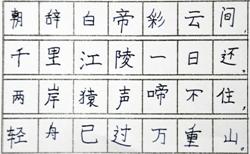 朝辞白帝彩云间,
千里江陵一日还.
两岸猿声啼不住,
轻舟已过万重山.